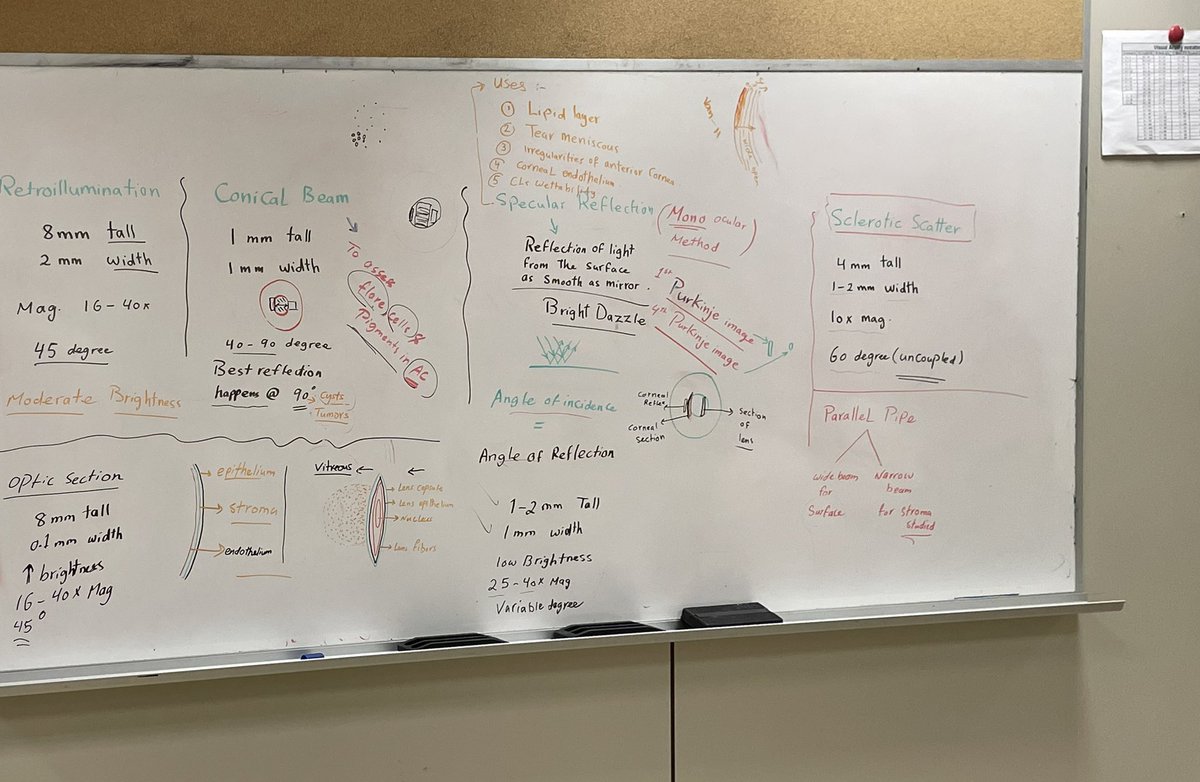 Retroillumination
8mm tall
2 mm width
Mag. 16-40x
45 degree
Moderate Brightness
Conical Beam
1 mm tall
1 mm width
40-90 degree
Best reflection
happens @ 90°
Cysts
Tumors
To assess
flare, cells &
Pigments in AC
Uses :-
① Lipid layer
② Tear meniscous
③ Irregularities of anterior Cornea
④ Corneal endothelium
⑤ CLs wettability
Specular Reflection (Mono ocular
Method)
Reflection of light
from The surface
as smooth as mirror.
Bright Dazzle
1st Purkinje image
4th Purkinje image
Angle of incidence
=
Angle of Reflection
1-2 mm Tall
1 mm width
low Brightness
25-40x Mag
Variable degree
Corneal
Reflex
Corneal
section
Section
of
lens
Sclerotic Scatter
4 mm tall
1-2 mm width
10x mag.
60 degree (uncoupled)
Parallel Pipe
wide beam
for
Surface
Narrow
beam
for stroma
studied
Optic Section
8 mm tall
0.1 mm width
↑ brightness
16-40x Mag
45°
epithelium
stroma
endothelium
Vitreous
Lens capsule
Lens epithelium
Nucleus
Lens fibers